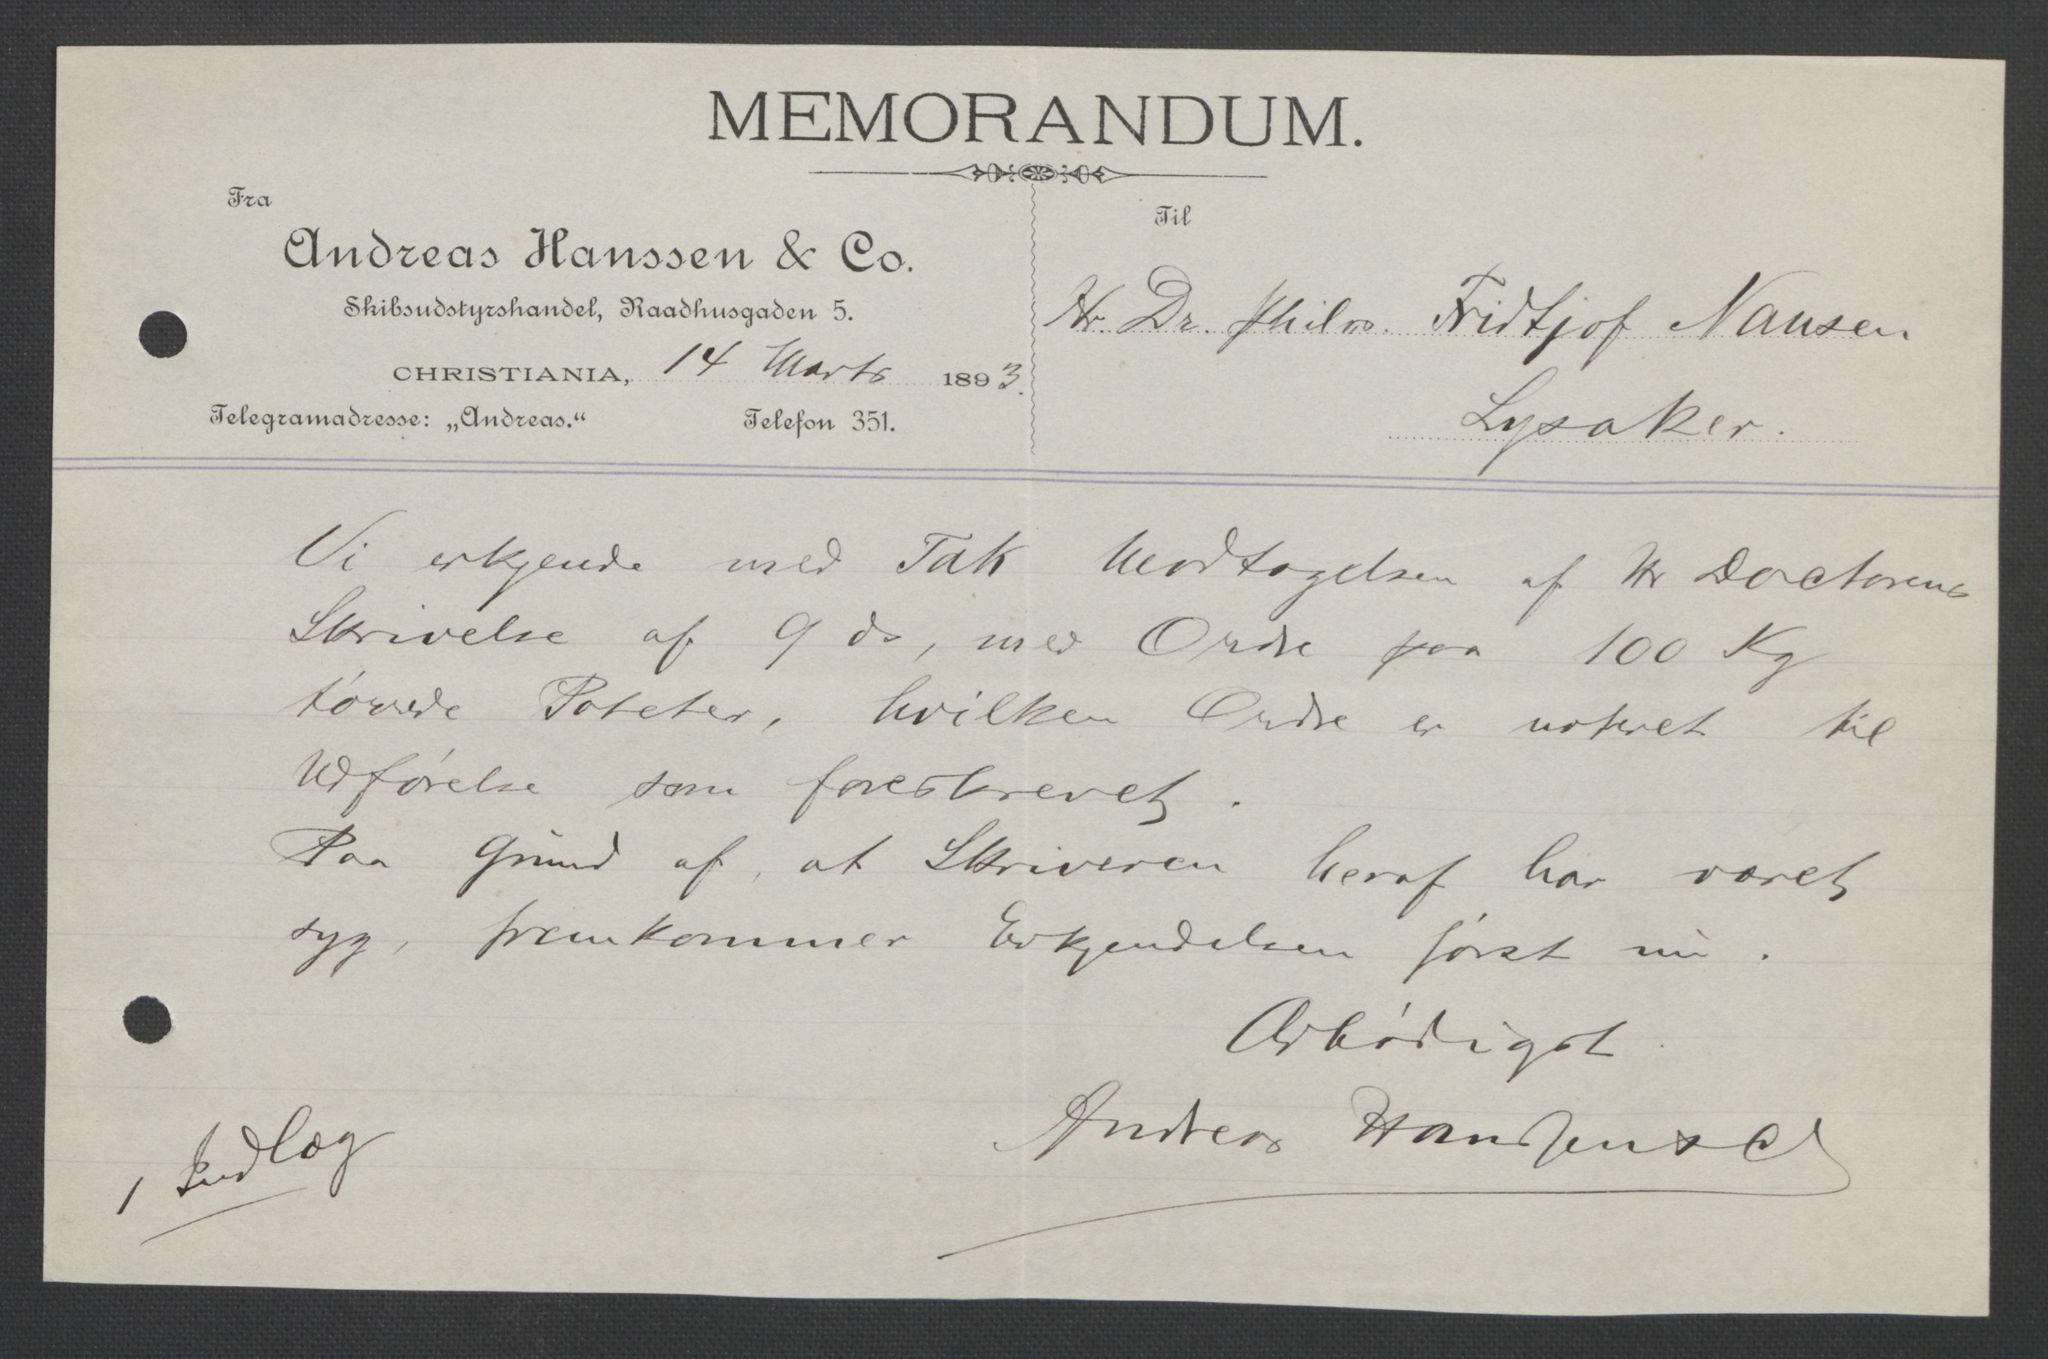 MEMORANDUM.
Fra
Andreas Hanssen & Co.
Skibsudstyrshandel, Raadhusgaden 5.
CHRISTIANIA, 14 Marts 1893.
Telegramadresse: „Andreas.“ Telefon 351.
Til
Hr. Dr. philos. Fridtjof Nansen.
Lysaker.
Vi erkjende med Tak Modtagelsen af Hr Doctorens
Skrivelse af 9 ds, med Ordre paa 100 Kg
tørrede Poteter, hvilken Ordre er noteret til
Udførelse som foreskrevet.
Paa Grund af, at Skriveren heraf har været
syg, fremkommer Erkjendelsen først nu.
Ærbødigst
Andreas Hanssen & Co
1 Indlæg